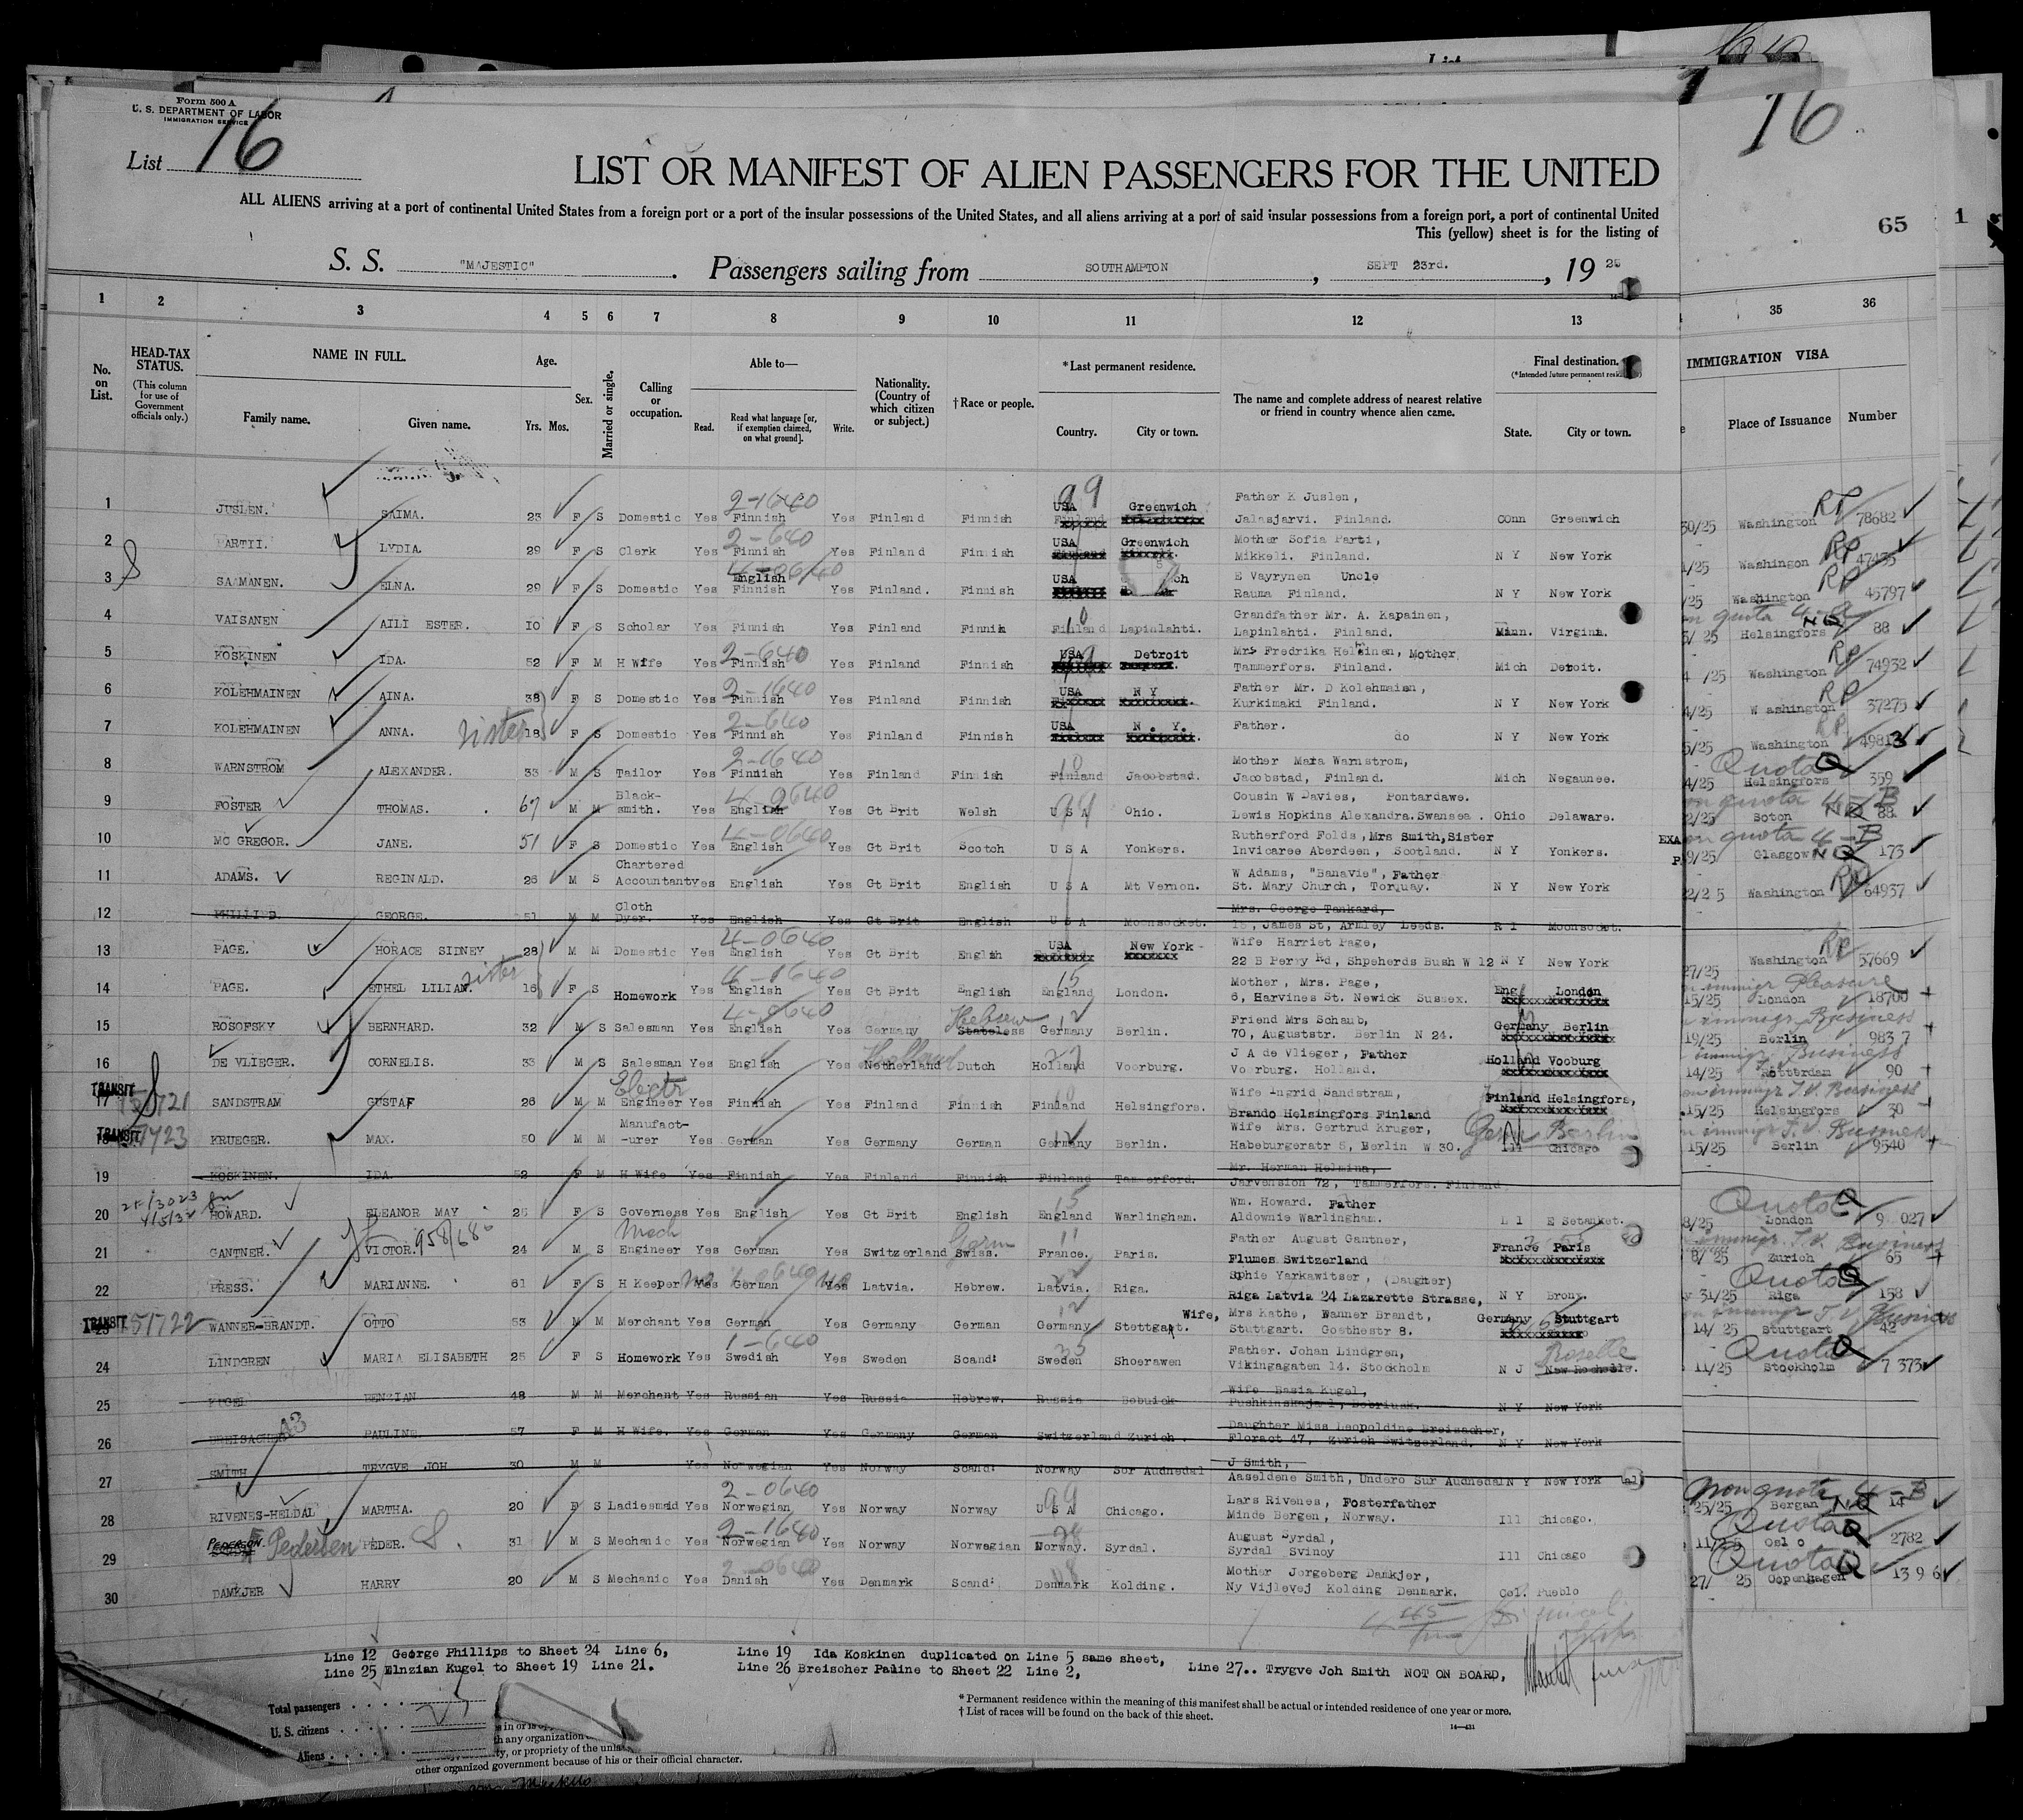 Form 500 A
U. S. DEPARTMENT OF LABOR
IMMIGRATION SERVICE
List 16
16
65
1
LIST OR MANIFEST OF ALIEN PASSENGERS FOR THE UNITED
ALL ALIENS arriving at a port of continental United States from a foreign port or a port of the insular possessions of the United States, and all aliens arriving at a port of said insular possessions from a foreign port, a port of continental United
This (yellow) sheet is for the listing of
S. S. "MAJESTIC" . Passengers sailing from SOUTHAMPTON , SEPT 23rd. , 19 25
1 2 3 4 5 6 7 8 9 10 11 12 13 35 36
No. on List.
HEAD-TAX STATUS.
(This column for use of Government officials only.)
NAME IN FULL.
Family name. Given name.
Age.
Yrs. Mos.
Sex.
Married or single.
Calling or occupation.
Able to—
Read. Read what language [or, if exemption claimed, on what ground]. Write.
Nationality. (Country of which citizen or subject.)
† Race or people.
* Last permanent residence.
Country. City or town.
The name and complete address of nearest relative or friend in country whence alien came.
Final destination.
State. City or town.
IMMIGRATION VISA
Place of Issuance Number
1 JUSLEN. SAIMA. 23 F S Domestic Yes 2-1640 Finnish Yes Finland Finnish 99 USA Greenwich Father K Juslen, Jalasjarvi. Finland. COnn Greenwich 30/25 Washington RP 78682
2 PARTII. LYDIA. 29 F S Clerk Yes 2-640 Finnish Yes Finland Finnish USA Greenwich Mother Sofia Parti, Mikkeli. Finland. N Y New York 1/25 Washingon RP 47455
3 SAAMANEN. ELNA. 29 F S Domestic Yes English Finnish Yes Finland. Finnish USA E Vayrynen Uncle Rauma Finland. N Y New York /25 Washington RP 45797
4 VAISANEN AILI ESTER. 10 F S Scholar Yes Finnish Yes Finland Finnih Finland Lapinlahti. Grandfather Mr. A. Kapainen, Lapinlahti. Finland. Minn. Virgina. 5/ 25 Helsingfors 88
5 KOSKINEN IDA. 52 F M H Wife Yes 2-640 Finnish Yes Finland Finnish USA Detroit Mrs Fredrika Helminen, Mother Tammerfors. Finland. Mich Detoit. 4 /25 Washington RP 74932
6 KOLEHMAINEN AINA. 38 F S Domestic Yes 2-1640 Finnish Yes Finland Finnish USA N Y Father Mr. D Kolehmaien, Kurkimaki Finland. N Y New York 4/25 W ashington RP 37275
7 KOLEHMAINEN ANNA. sister 18 F S Domestic Yes 2-640 Finnish Yes Finland Finnish USA N. Y. Father. do N Y New York 5/25 Washington RP 49813
8 WARNSTROM ALEXANDER. 33 M S Tailor Yes 2-1640 Finnish Yes Finland Finnish Finland Jacobstad. Mother Maria Warnstrom, Jacobstad, Finland. Mich Negaunee. Quota 4/25 Helsingfors 359
9 FOSTER THOMAS. 67 M M Black- smith. Yes English Yes Gt Brit Welsh U S A Ohio. Cousin W Davies, Pontardawe. Lewis Hopkins Alexandra.Swansea. Ohio Delaware. 2/25 Soton 88.
10 MC GREGOR. JANE. 51 F S Domestic Yes English Yes Gt Brit Scotch U S A Yonkers. Rutherford Folds, Mrs Smith, Sister Invicaree Aberdeen, Scotland. N Y Yonkers. 9/25 Glasgow 173
11 ADAMS. REGINALD. 26 M S Chartered Accountant yes English Yes Gt Brit English U S A Mt Vernon. W Adams, "Banavie", Father St. Mary Church, Torquay. N Y New York 22/2 5 Washington RP 64937
12 PHILLIPS. GEORGE. 51 M M Cloth Dyer. Yes English Yes Gt Brit English U S A Moonsocket. Mrs. George Tankard, 15, James St, Armley Leeds. R I Moonsocket.
13 PAGE. HORACE SIDNEY 28 M M Domestic Yes 4-0640 English Yes Gt Brit English USA New York Wife Harriet Page, 22 B Perry Rd, Shpeherds Bush W 12 N Y New York 27/25 Washington RP 57669
14 PAGE. ETHEL LILIAN. sister 16 F S Homework Yes 4-1640 English Yes Gt Brit English 15 England London. Mother, Mrs. Page, 6, Harvines St. Newick Sussex. Eng London 15/25 London Pleasure 18700
15 ROSOFSKY BERNHARD. 32 M S Salesman Yes English Yes Germany Hebrew Stateless Germany Berlin. Friend Mrs Schaub, 70, Auguststr. Berlin N 24. Germany Berlin 19/25 Berlin Business 983 7
16 DE VLIEGER. CORNELIS. 33 M S Salesman Yes English Yes Holland Netherland Dutch Holland Voorburg. J A de Vlieger, Father Voorburg. Holland. Holland Vooburg 14/25 Rotterdam Business 90
TRANSIT 17 SANDSTRAM GUSTAF 26 M M Electr Engineer Yes Finnish Yes Finland Finnish Finland Helsingfors. Wife Ingrid Sandstram, Brando Helsingfors Finland Finland Helsingfors, 15/25 Helsingfors Business 30
TRANSIT KRUEGER. MAX. 50 M M Manufact- -urer Yes German Yes Germany German Germany Berlin. Wife Mrs. Gertrud Kruger, Habeburgeratr 5, Berlin W 30. Germ Berlin Ill Chicago 15/25 Berlin Business 9540
19 KOSKINEN. IDA. 52 F M H Wife Yes Finnish Yes Finland Finnish Finland Tammerford. Mr. Herman Helmina, Jarvension 72, Tammerfors. Finland
20 HOWARD. ELEANOR MAY 25 F S Governess Yes English Yes Gt Brit English 15 England Warlingham. Wm. Howard. Father Aldownie Warlingham. L I E Setanket. Quota 8/25 London 9 027
21 GANTNER. VICTOR. 24 M S Mech Engineer Yes German Yes Switzerland Germ Swiss. France. Paris. Father August Gantner, Flumes Switzerland France Paris 8/ 25 Zurich Business 65
22 PRESS. MARIANNE. 61 F S H Keeper Yes German Yes Latvia. Hebrew. Latvia. Riga. Sphie Yarkawitser, (Daughter) Riga Latvia 24 Lazarette Strasse, N Y Bronx. Quota 31/25 Riga 158
TRANSIT 51722 WANNER-BRANDT. OTTO 53 M M Merchant Yes German Yes Germany German Germany Stottgart. Wife, Mrs Kathe, Wanner Brandt, Stuttgart. Goethestr 8. Germany Stuttgart 14/ 25 Stuttgart Business 42
24 LINDGREN MARIA ELISABETH 25 F S Homework Yes 1-640 Swedish Yes Sweden Scand: Sweden Shoerawen Father. Johan Lindgren, Vikingagaten 14. Stockholm N J Roselle New Rochelle. Quota 11/25 Stockholm 7 373
25 KUGEL BENZIAN 48 M M Merchant Yes Russian Yes Russia Hebrew. Russia Bobuick Wife Basia Kugel, Pushkinskaja 1, Bobriusk. N Y New York
26 BREISACHER PAULINE 57 F M H Wife. Yes German Yes Germany German Switzerland Zurich. Daughter Miss Leopoldine Breisacher, Floract 47, Zurich Switzerland. N Y New York
27 SMITH TRYGVE JOH 30 M M Yes Norwegian Yes Norway Scand: Norway Sor Audnedal J Smith, Aaseldene Smith, Undero Sur Audnedal N Y New York
28 RIVENES-HELDAL MARTHA. 20 F S Ladiesmaid Yes 2-0640 Norwegian Yes Norway Norway 99 U S A Chicago. Lars Rivenes, Fosterfather Minde Bergen, Norway. Ill Chicago. Non quota 4-B 25/25 Bergan 14
29 PEDERSON. Pedersen PEDER. 31 M S Mechanic Yes 2-1640 Norwegian Yes Norway Norwegian Norway. Syrdal. August Syrdal, Syrdal Svinoy Ill Chicago Quota 11/25 Osl o 2782
30 DAMKJER HARRY 20 M S Mechanic Yes 2-0640 Danish Yes Denmark Scand: Denmark Kolding. Mother Jorgeberg Damkjer, Ny Vijlevej Kolding Denmark. Col. Pueblo Quota 27/ 25 Copenhagen 13 9 6
Line 12 George Phillips to Sheet 24 Line 6, Line 19 Ida Koskinen duplicated on Line 5 same sheet,
Line 25 Elnzian Kugel to Sheet 19 Line 21. Line 26 Breischer Pauline to Sheet 22 Line 2, Line 27.. Trygve Joh Smith NOT ON BOARD,
Total passengers
U. S. citizens
Aliens
* Permanent residence within the meaning of this manifest shall be actual or intended residence of one year or more.
† List of races will be found on the back of this sheet.
other organized government because of his or their official character.